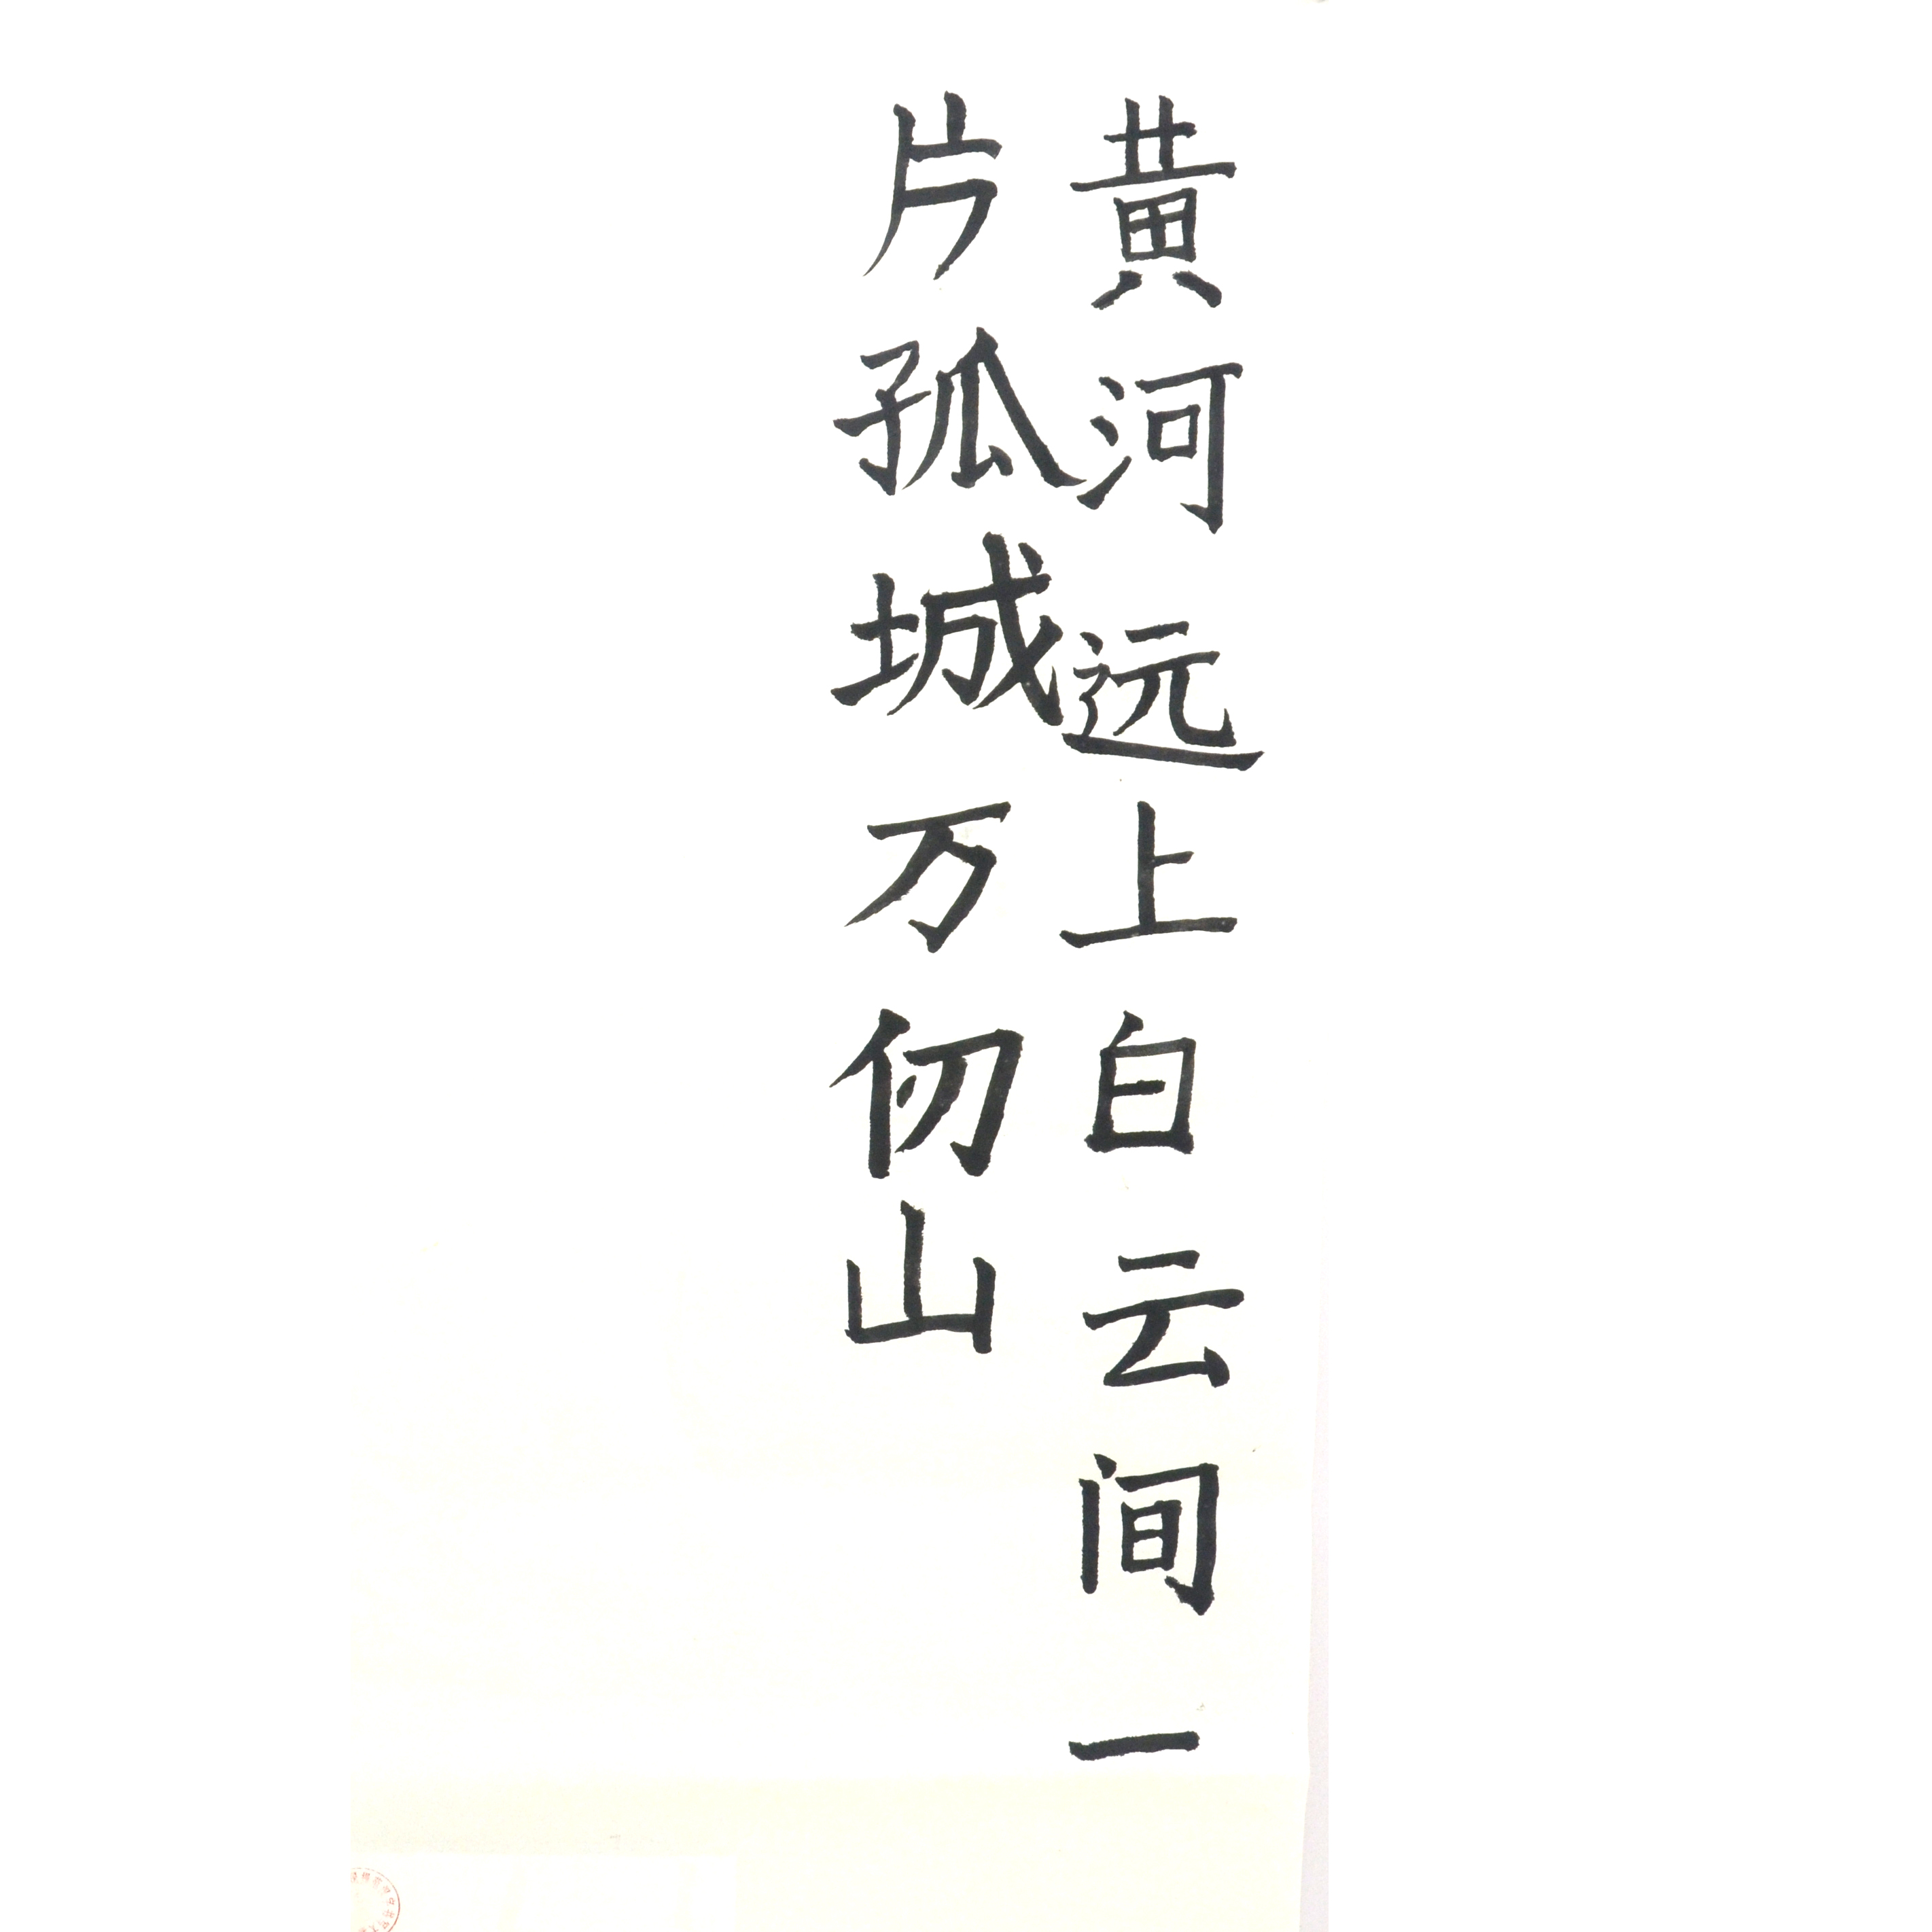 黄河远上白云间一
片孤城万仞山